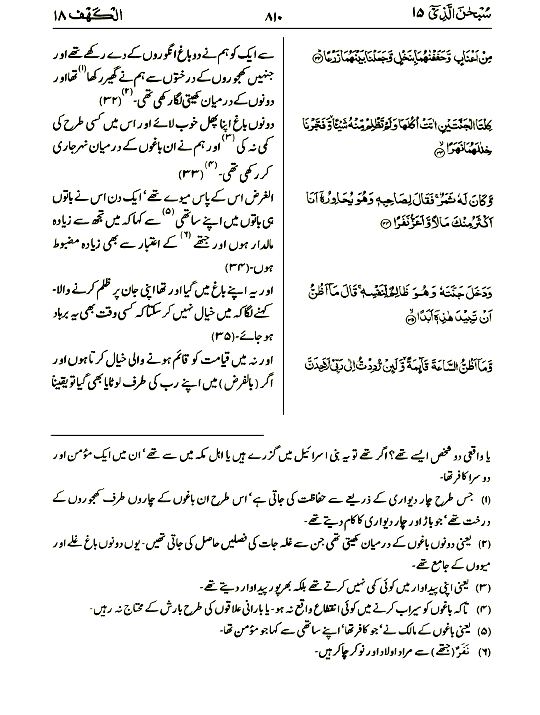 سُبْحٰنَ الَّذِیْٓ ۱۵
۸۱۰
الْکَھْف ۱۸
مِنْ اَعْنَابٍ وَّحَفَفْنٰهُمَا بِنَخْلٍ وَّجَعَلْنَا بَيْنَهُمَا زَرْعًا ﴿۳۲﴾
كِلْتَا الْجَنَّتَيْنِ اٰتَتْ اُكُلَهَا وَلَمْ تَظْلِمْ مِّنْهُ شَيْـًٔا ۙ وَّفَجَّرْنَا
خِلٰلَهُمَا نَهَرًا ﴿۳۳﴾
وَّكَانَ لَهٗ ثَمَرٌ ۚ فَقَالَ لِصَاحِبِهٖ وَهُوَ يُحَاوِرُهٗٓ اَنَا
اَكْثَرُ مِنْكَ مَالًا وَّاَعَزُّ نَفَرًا ﴿۳۴﴾
وَدَخَلَ جَنَّتَهٗ وَهُوَ ظَالِمٌ لِّنَفْسِهٖ ۚ قَالَ مَآ اَظُنُّ
اَنْ تَبِيْدَ هٰذِهٖٓ اَبَدًا ﴿۳۵﴾
وَّمَآ اَظُنُّ السَّاعَةَ قَآئِمَةً ۙ وَّلَئِنْ رُّدِدْتُّ اِلٰى رَبِّيْ لَاَجِدَنَّ
سے ایک کو ہم نے دو باغ انگوروں کے دے رکھے تھے اور
جنہیں کھجوروں کے درختوں سے ہم نے گھیر رکھا (۱) تھا اور
دونوں کے درمیان کھیتی لگا رکھی تھی۔ (۲) (۳۲)
دونوں باغ اپنا پھل خوب لائے اور اس میں کسی طرح کی
کمی نہ کی (۳) اور ہم نے ان باغوں کے درمیان نہر جاری
کر رکھی تھی۔ (۴) (۳۳)
الغرض اس کے پاس میوے تھے' ایک دن اس نے باتوں
ہی باتوں میں اپنے ساتھی (۵) سے کہا کہ میں تجھ سے زیادہ
مالدار ہوں اور جتھے (۶) کے اعتبار سے بھی زیادہ مضبوط
ہوں۔ (۳۴)
اور یہ اپنے باغ میں گیا اور تھا اپنی جان پر ظلم کرنے والا۔
کہنے لگا کہ میں خیال نہیں کر سکتا کہ کسی وقت بھی یہ برباد
ہو جائے۔ (۳۵)
اور نہ میں قیامت کو قائم ہونے والی خیال کرتا ہوں اور
اگر (بالفرض) میں اپنے رب کی طرف لوٹایا بھی گیا تو یقیناً
یا واقعی دو شخص ایسے تھے؟ اگر تھے تو یہ بنی اسرائیل میں گزرے ہیں یا اہل مکہ میں سے تھے' ان میں ایک مؤمن اور
دوسرا کافر تھا۔
(۱) جس طرح چار دیواری کے ذریعے سے حفاظت کی جاتی ہے' اس طرح ان باغوں کے چاروں طرف کھجوروں کے
درخت تھے' جو باڑ اور چار دیواری کا کام دیتے تھے۔
(۲) یعنی دونوں باغوں کے درمیان کھیتی تھی جن سے غلہ جات کی فصلیں حاصل کی جاتی تھیں۔ یوں دونوں باغ غلے اور
میووں کے جامع تھے۔
(۳) یعنی اپنی پیداوار میں کوئی کمی نہیں کرتے تھے بلکہ بھرپور پیداوار دیتے تھے۔
(۴) تاکہ باغوں کو سیراب کرنے میں کوئی انقطاع واقع نہ ہو۔ یا بارانی علاقوں کی طرح بارش کے محتاج نہ رہیں۔
(۵) یعنی باغوں کے مالک نے' جو کافر تھا' اپنے ساتھی سے کہا جو مؤمن تھا۔
(۶) نَفَرٌ (جتھے) سے مراد اولاد اور نوکر چاکر ہیں۔